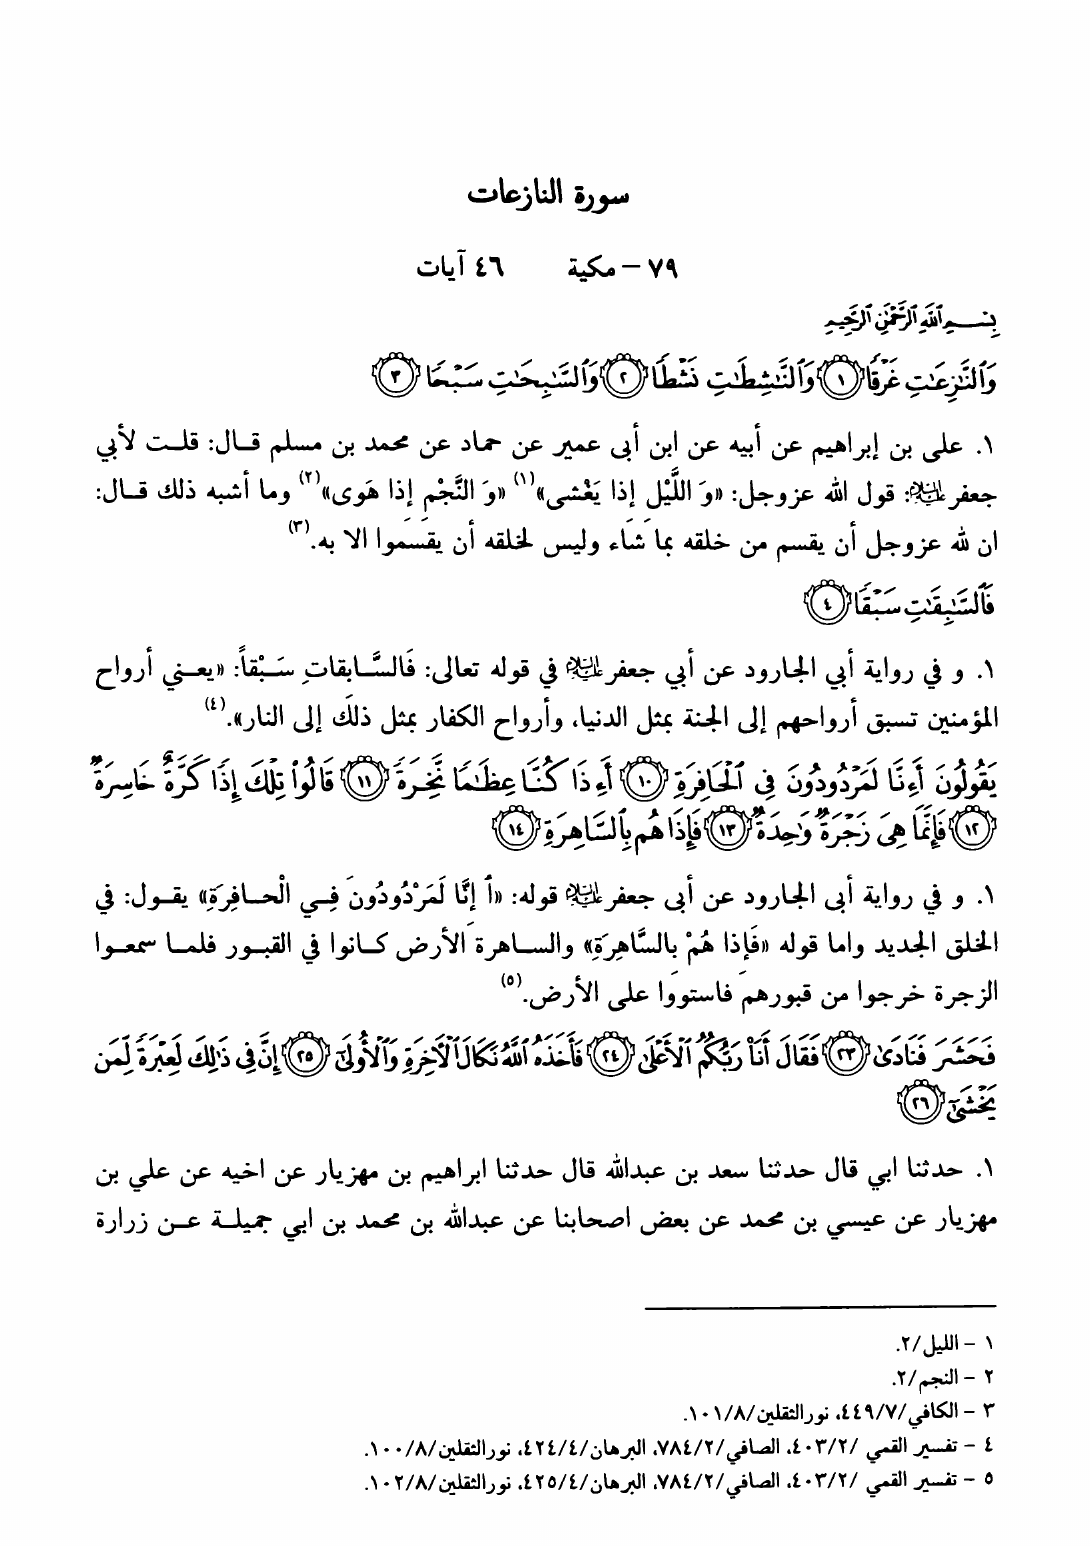 سورة النازعات
٧٩ – مكية ٤٦ آيات
بِسْمِ ٱللَّهِ ٱلرَّحْمَٰنِ ٱلرَّحِيمِ
وَٱلنَّٰزِعَٰتِ غَرْقًا ﴿١﴾ وَٱلنَّٰشِطَٰتِ نَشْطًا ﴿٢﴾ وَٱلسَّٰبِحَٰتِ سَبْحًا ﴿٣﴾
١. على بن إبراهيم عن أبيه عن ابن أبى عمير عن حماد عن محمد بن مسلم قال: قلت لأبي
جعفر عليه السلام: قول الله عزوجل: «وَ اللَّيْلِ إذا يَغْشى»(١) «وَ النَّجْمِ إذا هَوى»(٢) وما أشبه ذلك قال:
ان لله عزوجل أن يقسم من خلقه بما شَاَء وليس لخلقه أن يقسَمَوا الا به.(٣)
فَٱلسَّٰبِقَٰتِ سَبْقًا ﴿٤﴾
١. و في رواية أبي الجارود عن أبي جعفر عليه السلام في قوله تعالى: فَالسَّابقاتِ سَبْقاً: «يعني أرواح
المؤمنين تسبق أرواحهم إلى الجنة بمثل الدنيا، وأرواح الكفار بمثل ذلَك إلى النار».(٤)
يَقُولُونَ أَءِنَّا لَمَرْدُودُونَ فِى ٱلْحَافِرَةِ ﴿١٠﴾ أَءِذَا كُنَّا عِظَٰمًا نَّخِرَةً ﴿١١﴾ قَالُوا۟ تِلْكَ إِذًا كَرَّةٌ خَاسِرَةٌ
﴿١٢﴾ فَإِنَّمَا هِىَ زَجْرَةٌ وَٰحِدَةٌ ﴿١٣﴾ فَإِذَا هُم بِٱلسَّاهِرَةِ ﴿١٤﴾
١. و في رواية أبى الجارود عن أبى جعفر عليه السلام قوله: «أ إنَّا لَمَرْدُودُونَ فِي الْحافِرَةِ» يقول: في
الخلق الجديد واما قوله «فَإذا هُمْ بالسَّاهِرَةِ» والساهرة الأرض كانوا في القبور فلما سمعوا
الزجرة خرجوا من قبورهمَ فاستوَوا على الأرض.(٥)
فَحَشَرَ فَنَادَىٰ ﴿٢٣﴾ فَقَالَ أَنَا۠ رَبُّكُمُ ٱلْأَعْلَىٰ ﴿٢٤﴾ فَأَخَذَهُ ٱللَّهُ نَكَالَ ٱلْءَاخِرَةِ وَٱلْأُولَىٰٓ ﴿٢٥﴾ إِنَّ فِى ذَٰلِكَ لَعِبْرَةً لِّمَن
يَخْشَىٰٓ ﴿٢٦﴾
١. حدثنا ابي قال حدثنا سعد بن عبدالله قال حدثنا ابراهيم بن مهزيار عن اخيه عن علي بن
مهزيار عن عيسي بن محمد عن بعض اصحابنا عن عبدالله بن محمد بن ابي جميلة عن زرارة
١ – الليل/٢.
٢ – النجم/٢.
٣ – الكافي/٤٤٩/٧، نورالثقلين/١٠١/٨.
٤ – تفسير القمي /٤٠٣/٢، الصافي/٧٨٤/٢، البرهان/٤٢٤/٤، نورالثقلين/١٠٠/٨.
٥ – تفسير القمي /٤٠٣/٢، الصافي/٧٨٤/٢، البرهان/٤٢٥/٤، نورالثقلين/١٠٢/٨.